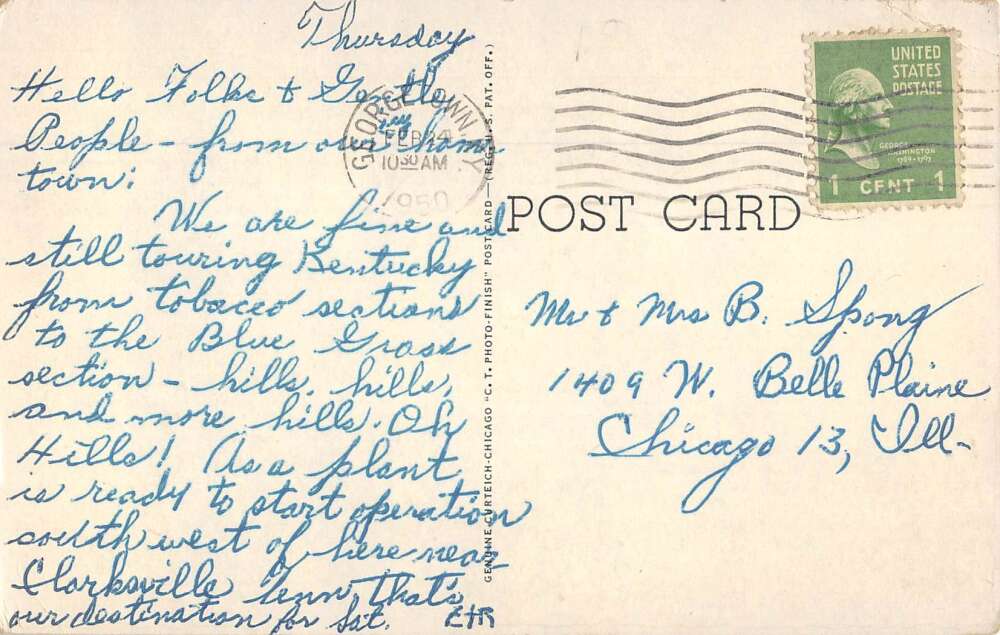 Thursday
Hello Folks & Gentle
People - from our home
my
town:
We are fine and
still touring Kentucky
from tobacco sections
to the Blue Grass
section - hills, hills,
and more hills. Oh
Hills! As a plant
is ready to start operation
south west of here near
Clarksville Tenn, that's
our destination for Sat. EHR
GEORGETOWN, KY
FEB 24
10 30 AM
1950
GENUINE CURTEICH-CHICAGO "C. T. PHOTO-FINISH" POST CARD — (REG. U. S. PAT. OFF.)
UNITED
STATES
POSTAGE
GEORGE
WASHINGTON
1789-1797
1 CENT 1
POST CARD
Mr & Mrs B. Spong
1409 W. Belle Plaine
Chicago 13, Ill-